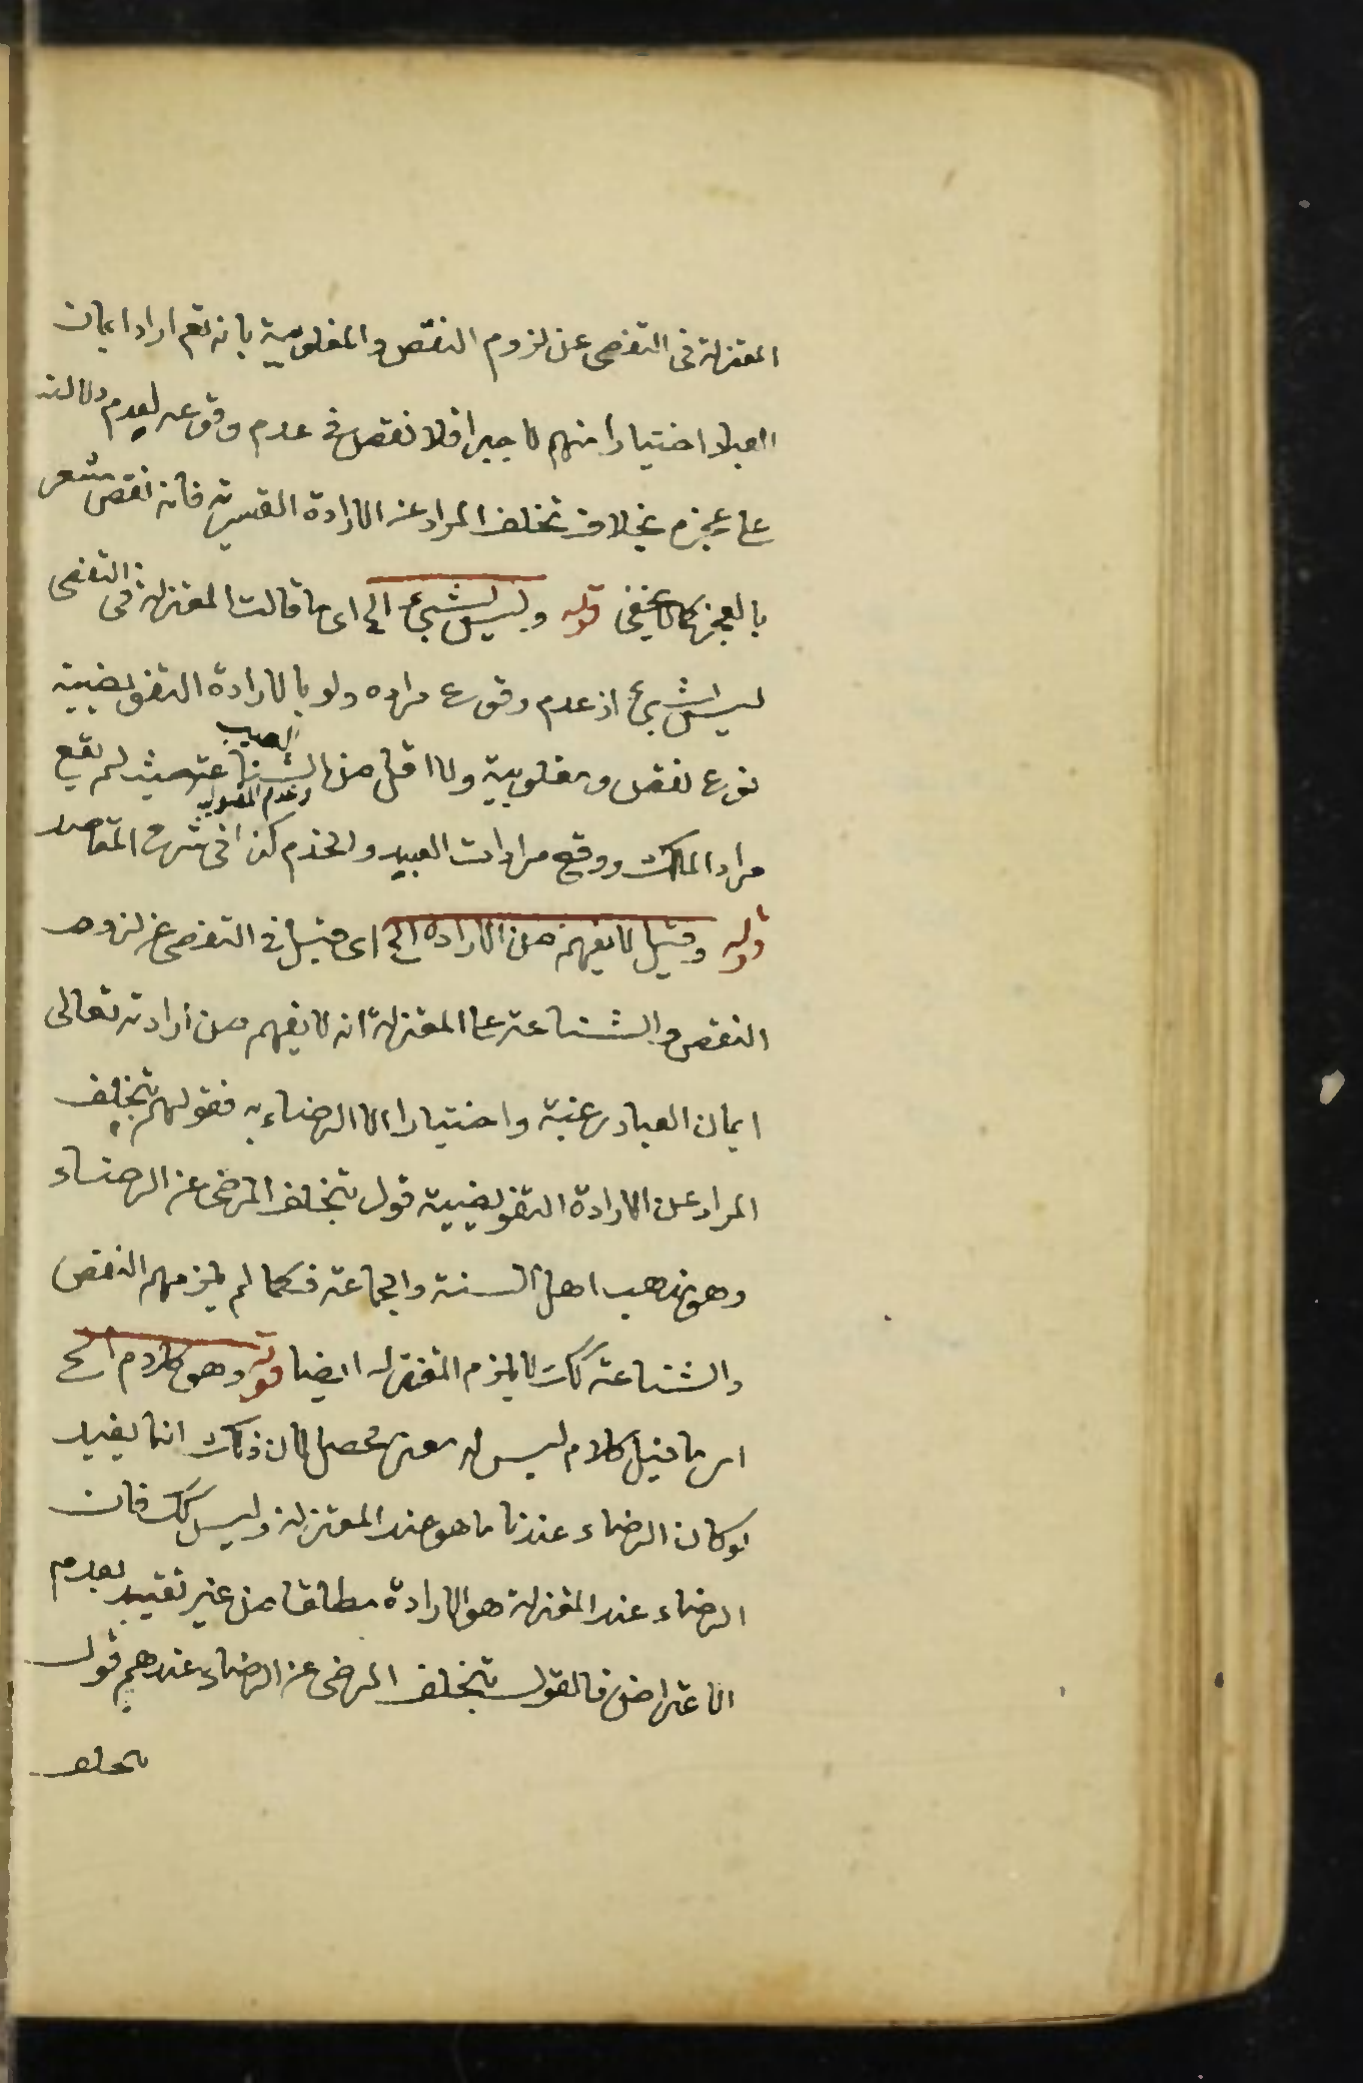 المعتزلة فى التفصى عن لزوم النقص والمغلوبية بانه تعم اراد ايمان
العباد اختيارا منهم لا جبرا فلا نقص فى عدم وقوعه لعدم دلالته
على عجزه بخلاف تخلف المراد عن الارادة القسرية فانه نقص مشعر
بالعجز كما لا يخفى قوله وليس بشئ الخ اى ما قالت المعتزلة فى التفصى
ليس بشئ اذ عدم وقوع مراده ولو بالارادة التفويضية
نوع نقص ومغلوبية ولا اقل من الشناعة حيث لم يقع
العيب
وعدم القبول
مراد المالك ووقع مرادات العبيد والخدم كذا فى شرح المقاصد
قوله وقيل لا يفهم من الارادة الخ اى قيل فى التفصى عن لزوم
النقص والشناعة على المعتزلة انه لا يفهم من ارادته تعالى
ايمان العباد رغبة واختيارا الا الرضاء به فقولهم بتخلف
المراد عن الارادة التفويضية قول بتخلف المرضى عن الرضاء
وهو مذهب اهل السنة والجماعة فكما لم يلزمهم النقص
والشناعة كك لا يلزم المعتزلة ايضا قوله وهو كلام الخ
اى ما قيل كلام ليس له معنى محصل لان ذلك انما يفيد
لو كان الرضاء عندنا ما هو عند المعتزلة وليس كك فان
الرضاء عند المعتزلة هو الارادة مطلقا من غير تقييد بعدم
الاعتراض فالقول بتخلف المرضى عن الرضاء عندهم قول
بتخلف